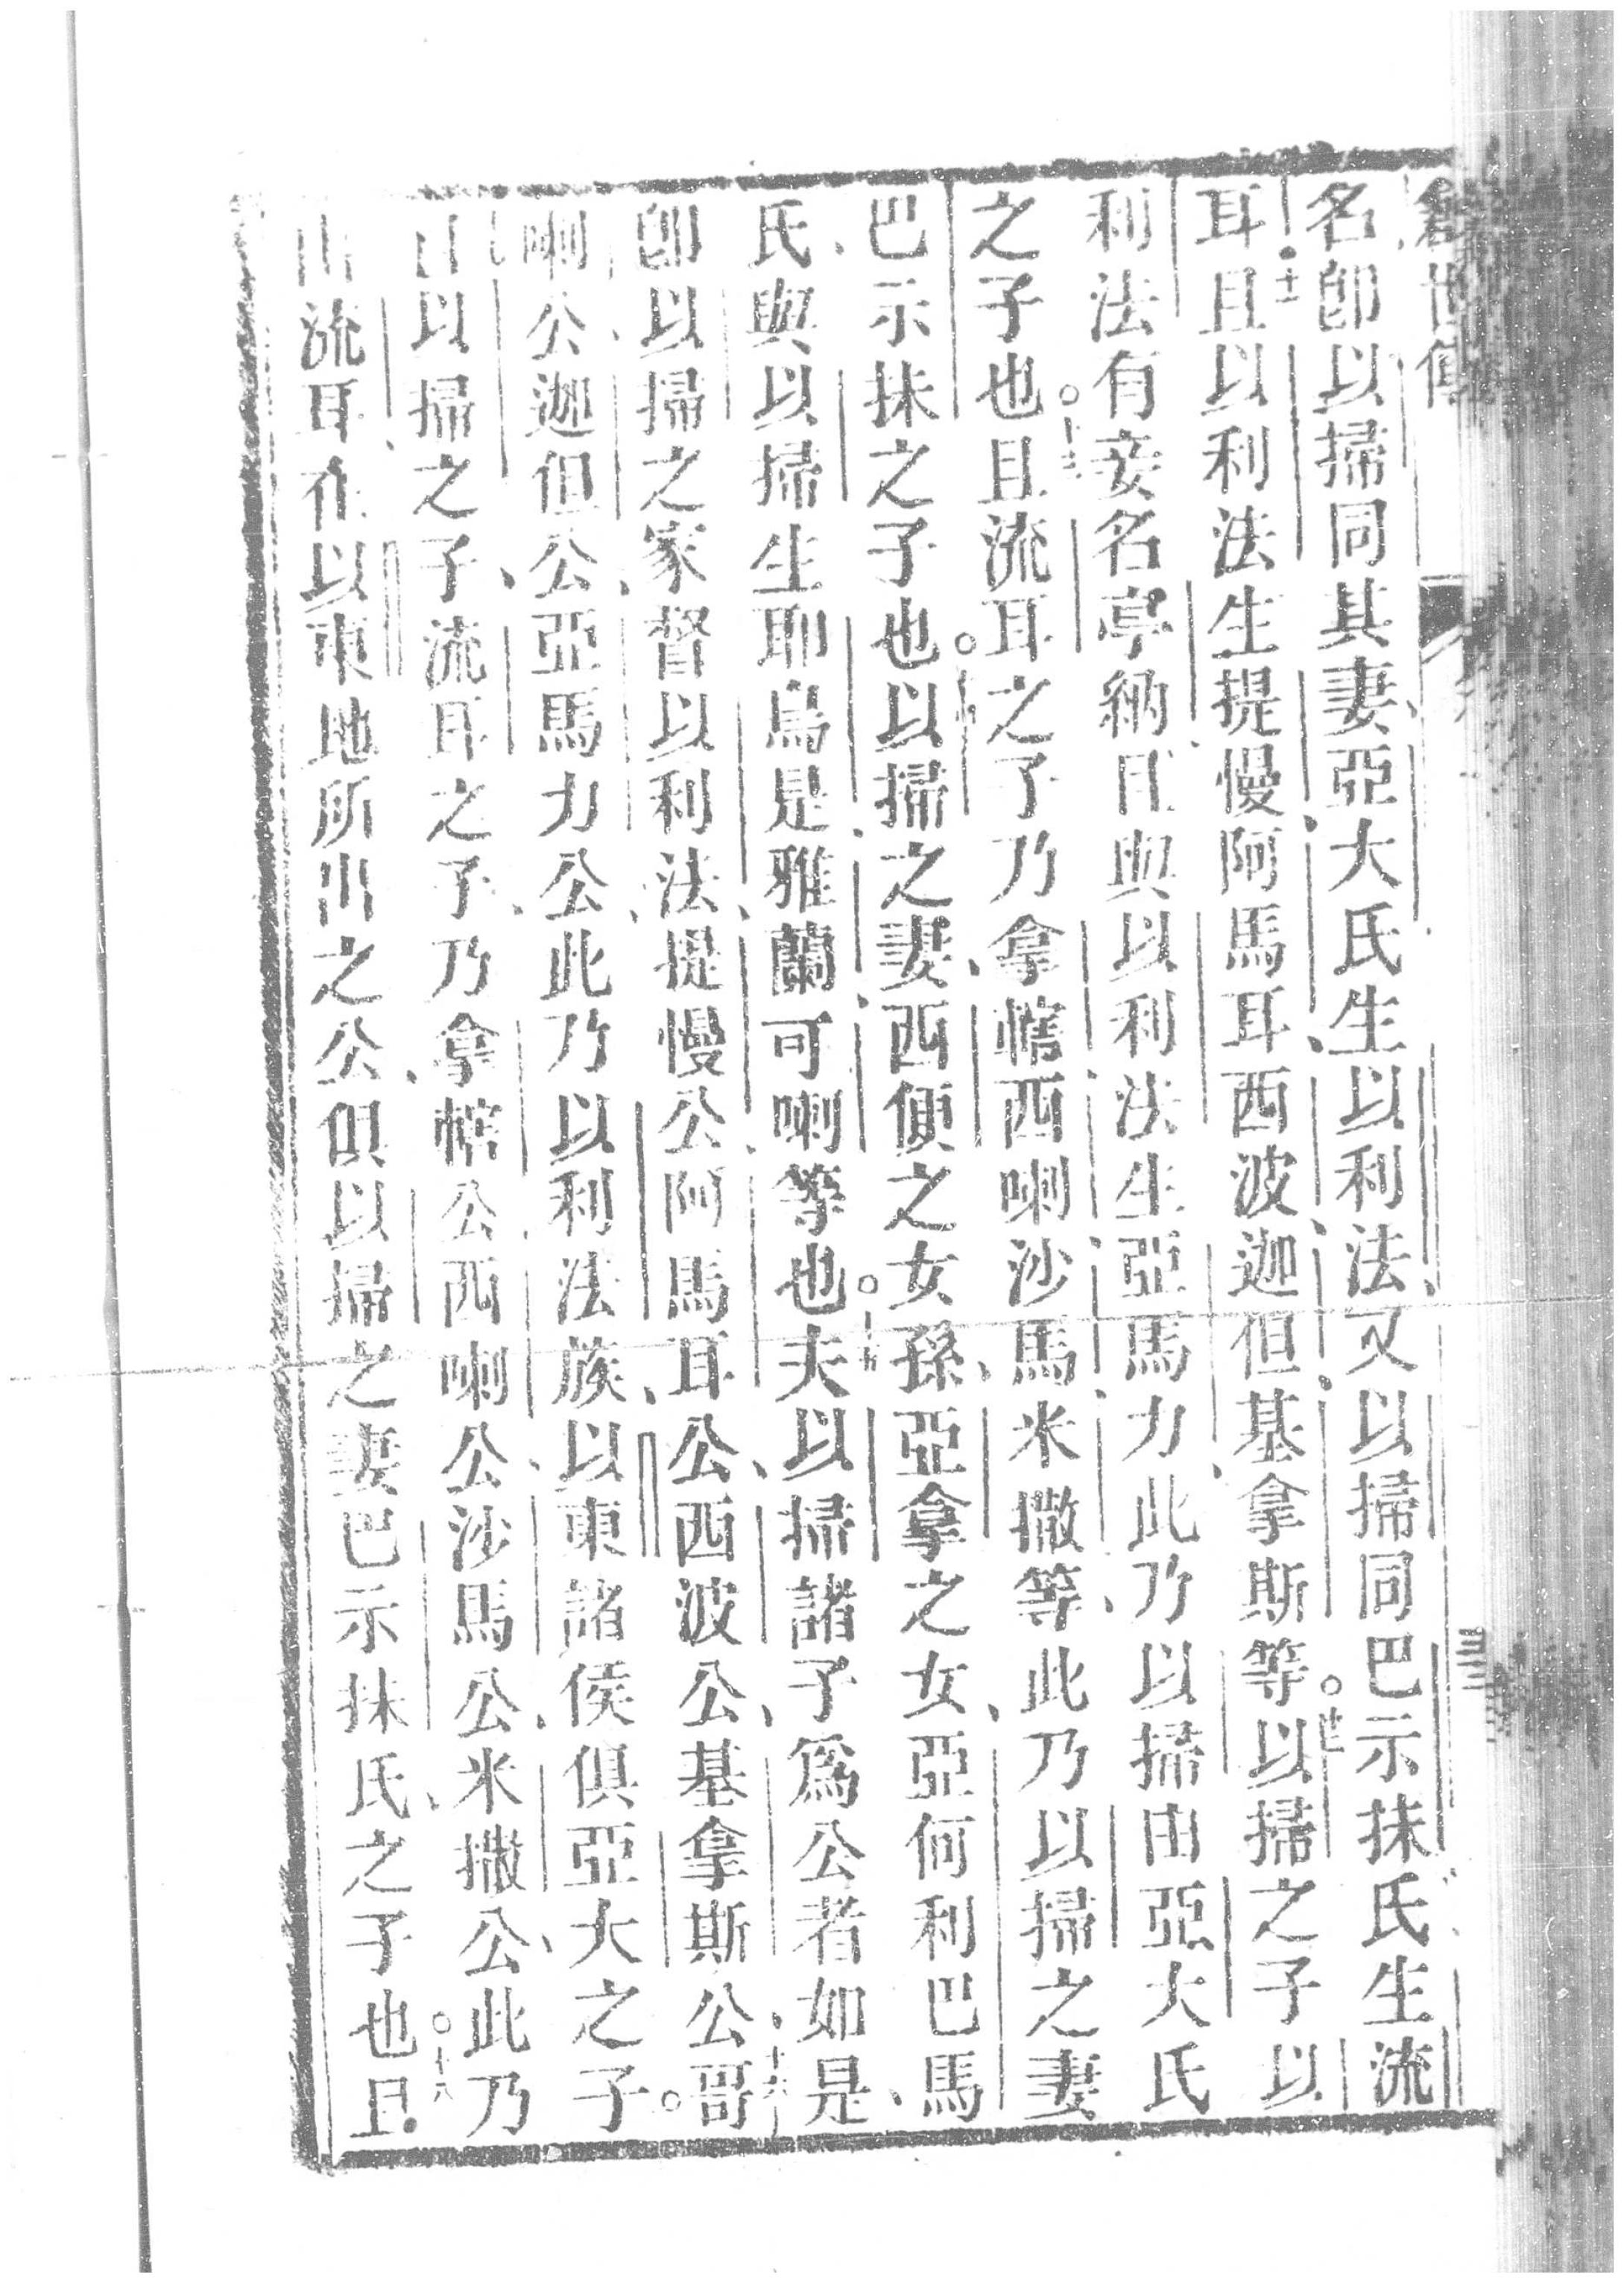 創世傳
名卽以掃同其妻、亞大氏生以利法、又以掃同巴示抹氏生流
耳。十一且以利法生提慢、阿馬耳、西波、迦但、基拿斯等。十二以掃之子以
利法有妾名亭納、且與以利法生亞馬力、此乃以掃由亞大氏
之子也。十三且流耳之子乃拿轄、西喇、沙馬、米撒等、此乃以掃之妻
巴示抹之子也。十四以掃之妻、西便之女孫、亞拿之女、亞何利巴馬
氏、與以掃生耶烏是、雅蘭、可喇等也。十五夫以掃諸子爲公者如是、
卽以掃之家督以利法、提慢公、阿馬耳公、西波公、基拿斯公、十六哥
喇公、迦但公、亞馬力公、此乃以利法族、以東諸侯、俱亞大之子。
以掃之子、流耳之子、乃拿轄公、西喇公、沙馬公、米撒公、此乃
由流耳、在以東地所出之公、俱以掃之妻巴示抹氏之子也。十八且